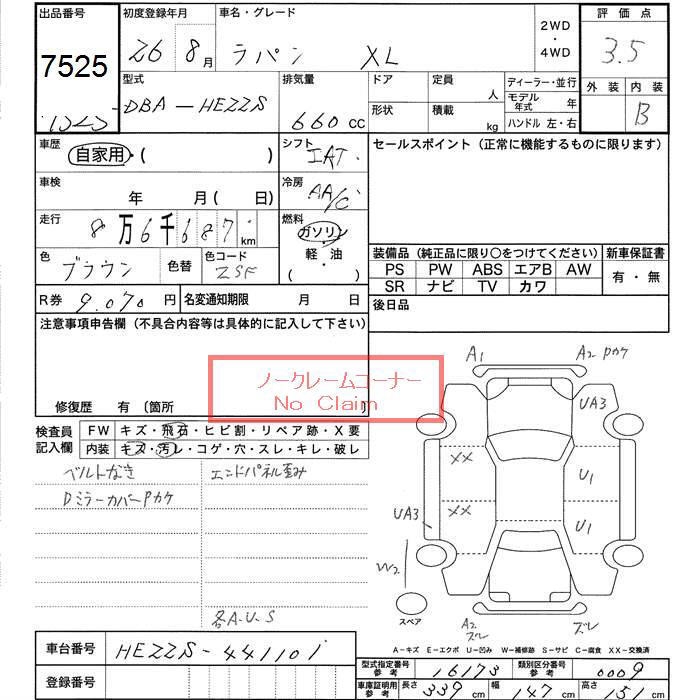 出品番号 初度登録年月 車名・グレード 2WD・4WD 評価点
7525 26 8月 ラパン XL 3.5
型式 排気量 ドア 定員 人 ディーラー・並行 外装 内装
DBA-HE22S 660cc 形状 積載 kg モデル年式 年 B
ハンドル 左・右
車歴 自家用・( ) シフト IAT セールスポイント(正常に機能するものに限ります)
車検 年 月( 日) 冷房 AA/C
走行 8万6千687km 燃料 ガソリン・軽油・( )
色 ブラウン 色替 色コード 装備品(純正品に限り○をつけてください) 新車保証書
PS PW ABS エアB AW 有・無
SR ナビ TV カワ
R券 9,070円 名変通知期限 月 日 後日品
注意事項申告欄(不具合内容等は具体的に記入して下さい)
ノークレームコーナー
No Claim
修復歴 有(箇所 )
検査員記入欄 FW キズ・飛石・ヒビ割・リペア跡・X要
内装 キズ・汚レ・コゲ・穴・スレ・キレ・破レ
ベルトなき エンドパネル歪み
DミラーカバーPカケ
各A.U.S
A1 A2 Pカケ
UA3
XX U1
XX U1
UA3
W2
スペア
A2 スレ スレ
A-キズ E-エクボ U-凹み W-補修跡 S-サビ C-腐食 XX-交換済
車台番号 HE22S-441101
登録番号
型式指定番号参考 16173 類別区分番号参考 0009
車庫証明用参考 長さ 339cm 幅 147cm 高さ 151cm